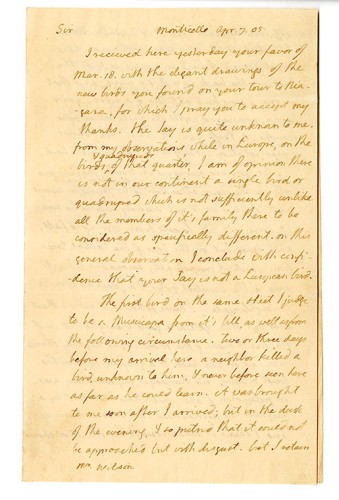 Sir Monticello Apr. 7. 05
I recieved here yesterday your favor of
Mar. 18. with the elegant drawings of the
new birds you found on your tour to Nia-
gara, for which I pray you to accept my
thanks. the Jay is quite unknown to me.
from my observations while in Europe, on the
birds & quadrupeds of that quarter, I am of opinion there
is not in our continent a single bird or
quadruped which is not sufficiently unlike
all the members of it's family there to be
considered as specifically different. on this
general observation I conclude with confi-
dence that your Jay is not a European bird.
The first bird on the same sheet I judge
to be a Muscicapa from it's bill, as well as from
the following circumstance. two or three days
before my arrival here a neighbor killed a
bird, unknown to him, & never before seen here
as far as he could learn. it was brought
to me soon after I arrived; but in the dusk
of the evening, & so putrid that it could not
be approached but with disgust. but I retain
mr. Wilson